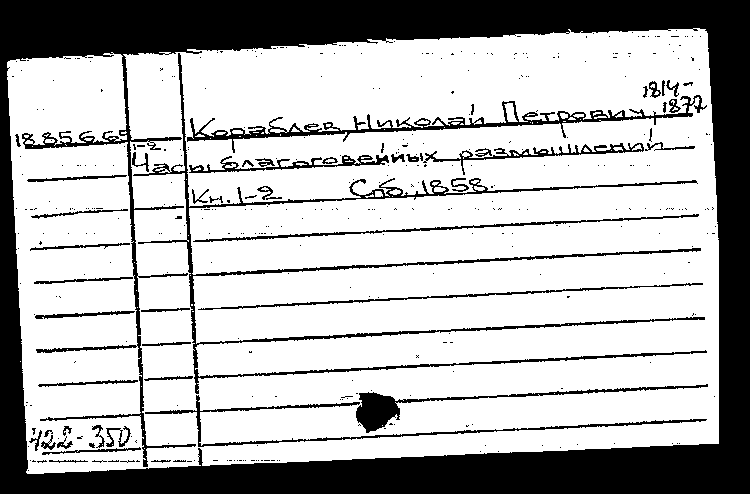 1814-
18.85.6.65 Кораблев, Николай Петрович, 1877
1-2.
Часы благоговейных размышлений
Кн. 1-2 Спб., 1858.
422-350